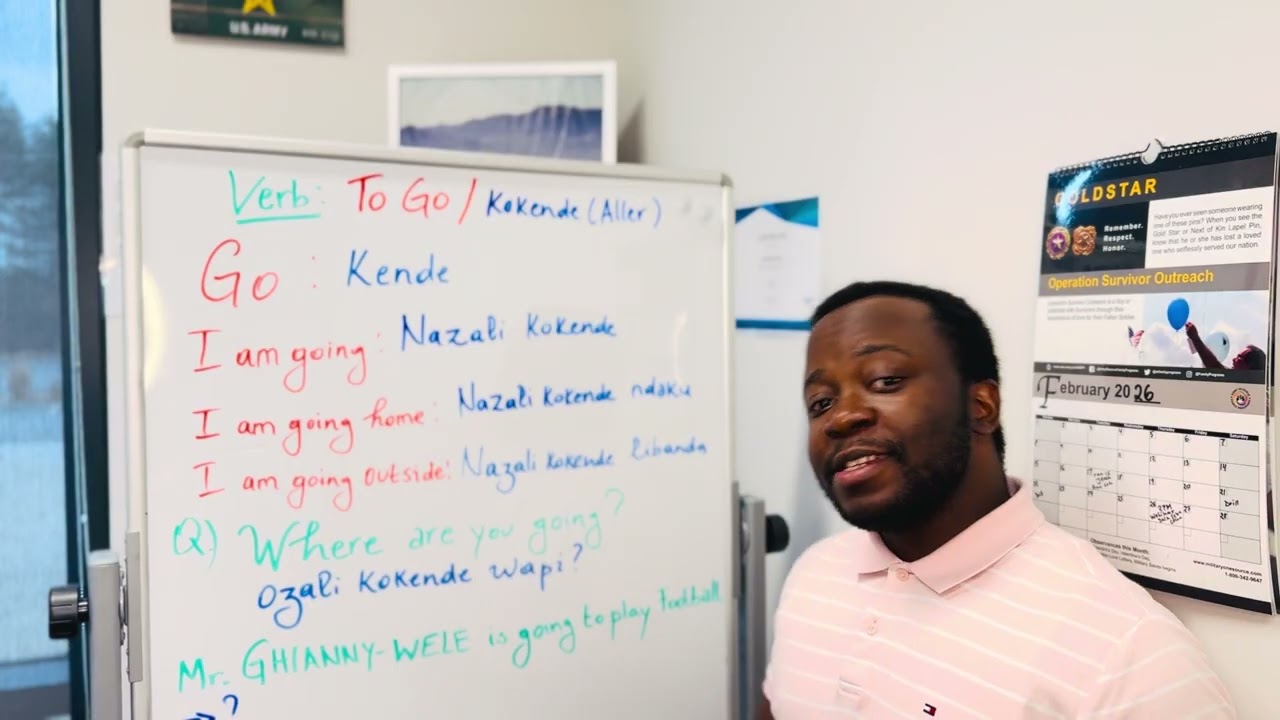 U.S. ARMY
Verb: To Go / Kokende (Aller)
Go : Kende
I am going : Nazali Kokende
I am going home : Nazali Kokende ndaku
I am going outside : Nazali Kokende libanda
Q) Where are you going?
Ozali Kokende wapi?
Mr. GHIANNY-WELE is going to play Football
→ ?
GOLDSTAR
Remember.
Respect.
Honor.
Have you ever seen someone wearing
one of these pins? When you see the
Gold Star or Next of Kin Lapel Pin,
know that he or she has lost a loved
one who selflessly served our nation.
Operation Survivor Outreach
February 2026
Observances this Month:
www.militaryonesource.com
1-800-342-9647